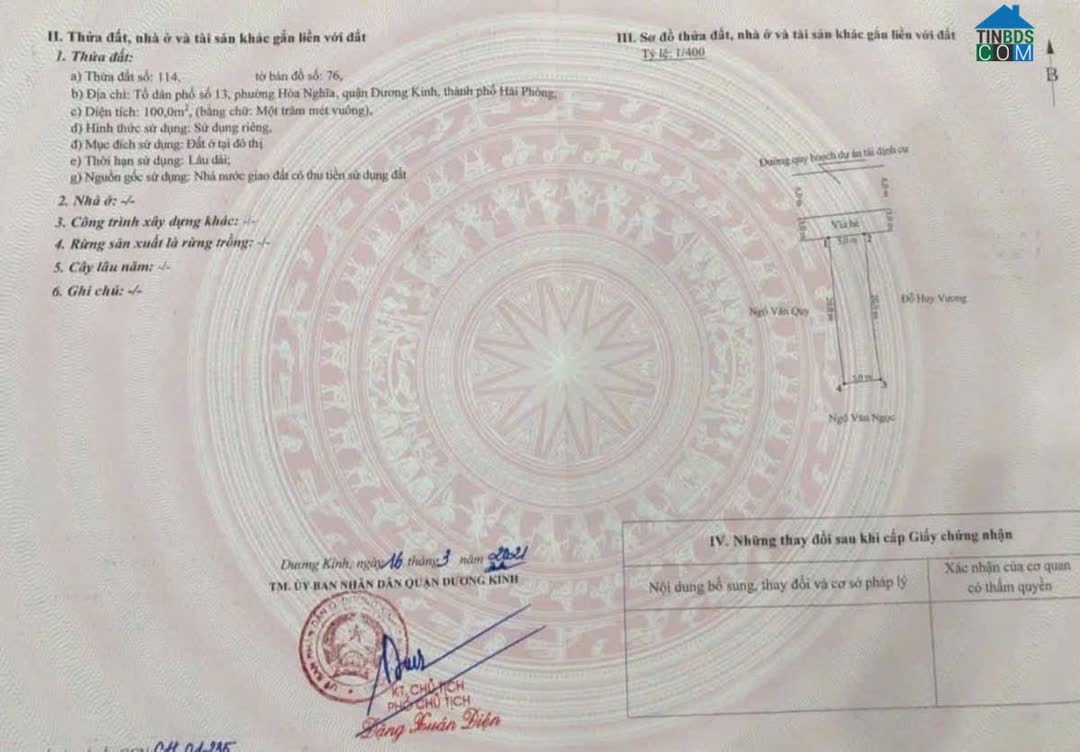 II. Thửa đất, nhà ở và tài sản khác gắn liền với đất
1. Thửa đất:
a) Thửa đất số: 114, tờ bản đồ số: 76,
b) Địa chỉ: Tổ dân phố số 13, phường Hòa Nghĩa, quận Dương Kinh, thành phố Hải Phòng,
c) Diện tích: 100,0m², (bằng chữ: Một trăm mét vuông),
d) Hình thức sử dụng: Sử dụng riêng,
đ) Mục đích sử dụng: Đất ở tại đô thị
e) Thời hạn sử dụng: Lâu dài;
g) Nguồn gốc sử dụng: Nhà nước giao đất có thu tiền sử dụng đất
2. Nhà ở: -/-
3. Công trình xây dựng khác: -/-
4. Rừng sản xuất là rừng trồng: -/-
5. Cây lâu năm: -/-
6. Ghi chú: -/-
Dương Kinh, ngày 16 tháng 3 năm 2021
TM. ỦY BAN NHÂN DÂN QUẬN DƯƠNG KINH
KT. CHỦ TỊCH
PHÓ CHỦ TỊCH
Đặng Xuân Điện
CH 01235
III. Sơ đồ thửa đất, nhà ở và tài sản khác gắn liền với đất
Tỷ lệ: 1/400
TINBDS
COM
B
Đường quy hoạch dự án tái định cư
6,0 m
6,0 m
Vỉa hè
3,0 m
3,0 m
1
5,0 m
2
20,0 m
20,0 m
Ngô Văn Quy
Đỗ Huy Vương
4
5,0 m
3
Ngô Văn Ngọc
IV. Những thay đổi sau khi cấp Giấy chứng nhận
Nội dung bổ sung, thay đổi và cơ sở pháp lý
Xác nhận của cơ quan
có thẩm quyền